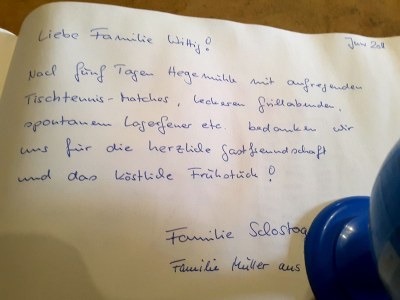 Liebe Familie Wittig!
Juni 2011
Nach fünf Tagen Hegemühle mit aufregenden
Tischtennis-Matches, leckeren Grillabenden,
spontanem Lagerfeuer etc. bedanken wir
uns für die herzliche Gastfreundschaft
und das köstliche Frühstück!
Familie
Familie Müller aus